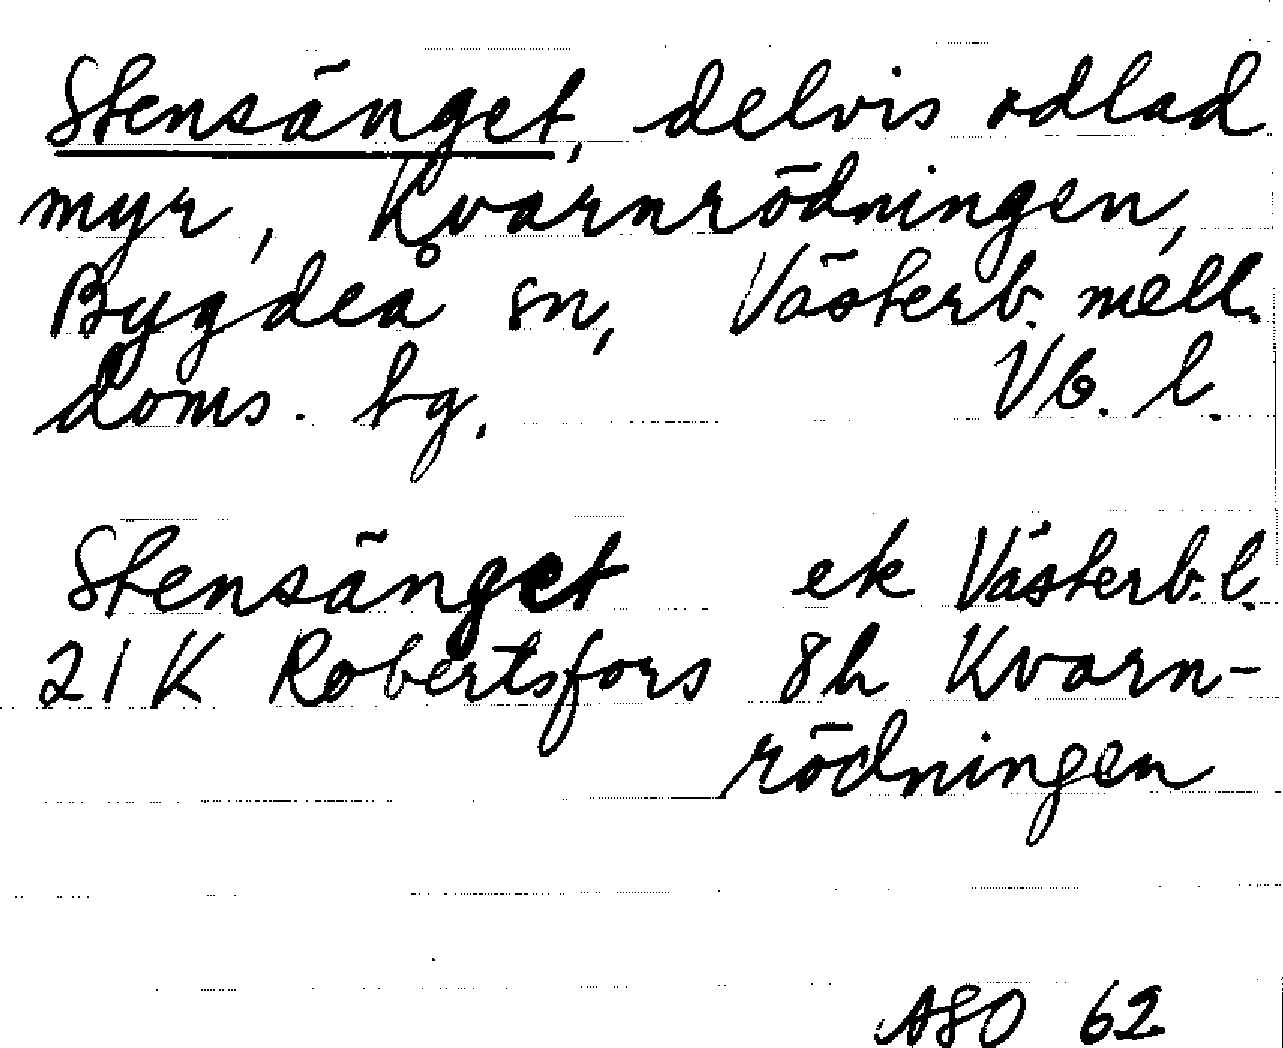 Stensänget, delvis odlad
myr, Kvarnrödningen,
Bygdeå sn, Västerb. mell.
doms. tg. Vb. l.
Stensänget ek Västerb. l.
21K Robertsfors 8h Kvarn-
rödningen
ASO 62